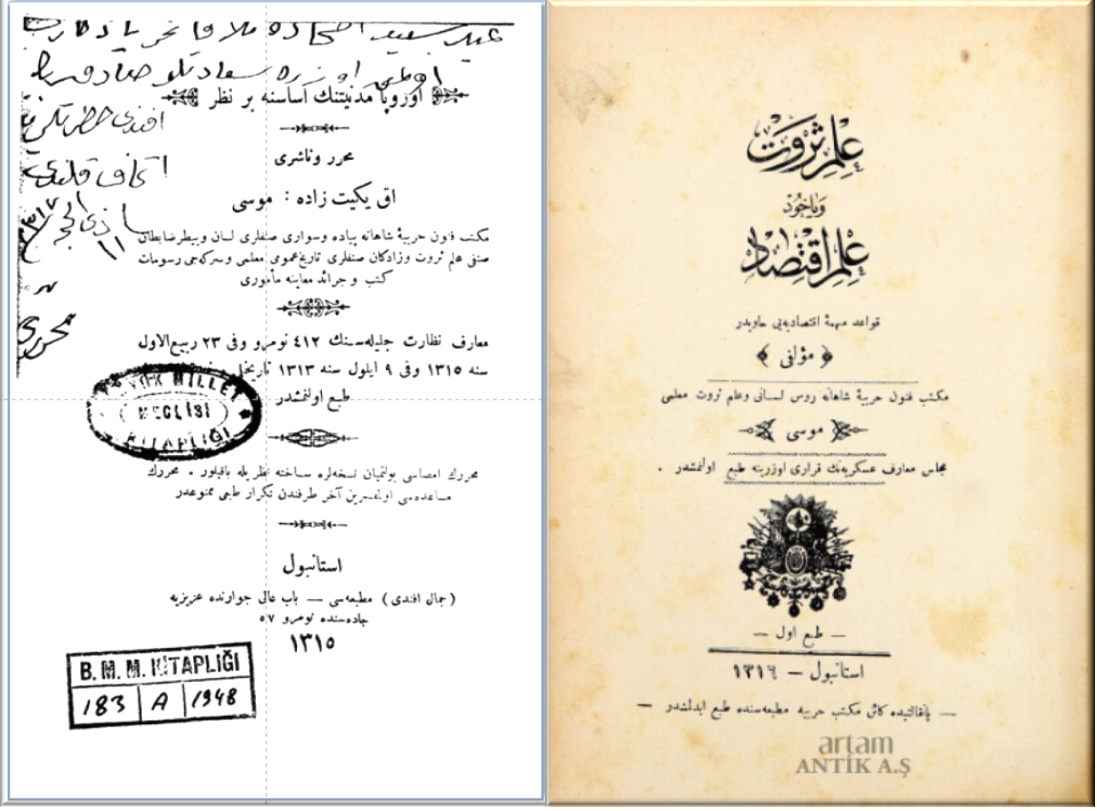 اوروپا مدنيتنك اساسنه بر نظر
محرر وناشرى
اق يكيت زاده : موسى
مكتب فنون حربيۀ شاهانه پياده وسوارى صنفلرى لسان وبيطر ضابطان
صنفى علم ثروت وزادكان صنفلرى تاريخ عمومى معلمى وسركه جى رسومات
كتب و جرائد معاينه مأمورى
معارف نظارت جليله سنك ٤١٢ نومرو وفى ٢٣ ربيع الاول
سنه ١٣١٥ وفى ٩ ايلول سنه ١٣١٣
طبع اولنمشدر
MILLET
MECLİSİ
KİTAPLIĞI
محررك امضاسى بولنميان نسخه لره ساخته نظريله باقيلور . محررك
مساعده سى اولمقسزين آخر طرفندن تكرار طبعى ممنوعدر
استانبول
(جمال افندى) مطبعه سى — باب عالى جوارنده عزيزيه
جاده سنده نومرو ٥٧
١٣١٥
B. M. M. KİTAPLIĞI
183 A 1948
علم ثروت
وياخود
علم اقتصاد
قواعد مهمۀ اقتصاديه يى حاويدر
﴿ مؤلفى ﴾
مكتب فنون حربيۀ شاهانه روس لسانى وعلم ثروت معلمى
موسى
مجلس معارف عسكريه نك قرارى اوزرينه طبع اولنمشدر .
— طبع اول —
استانبول — ١٣١٦
— پانغالتيده كائن مكتب حربيه مطبعه سنده طبع ايدلمشدر —
artam
ANTİK A.Ş